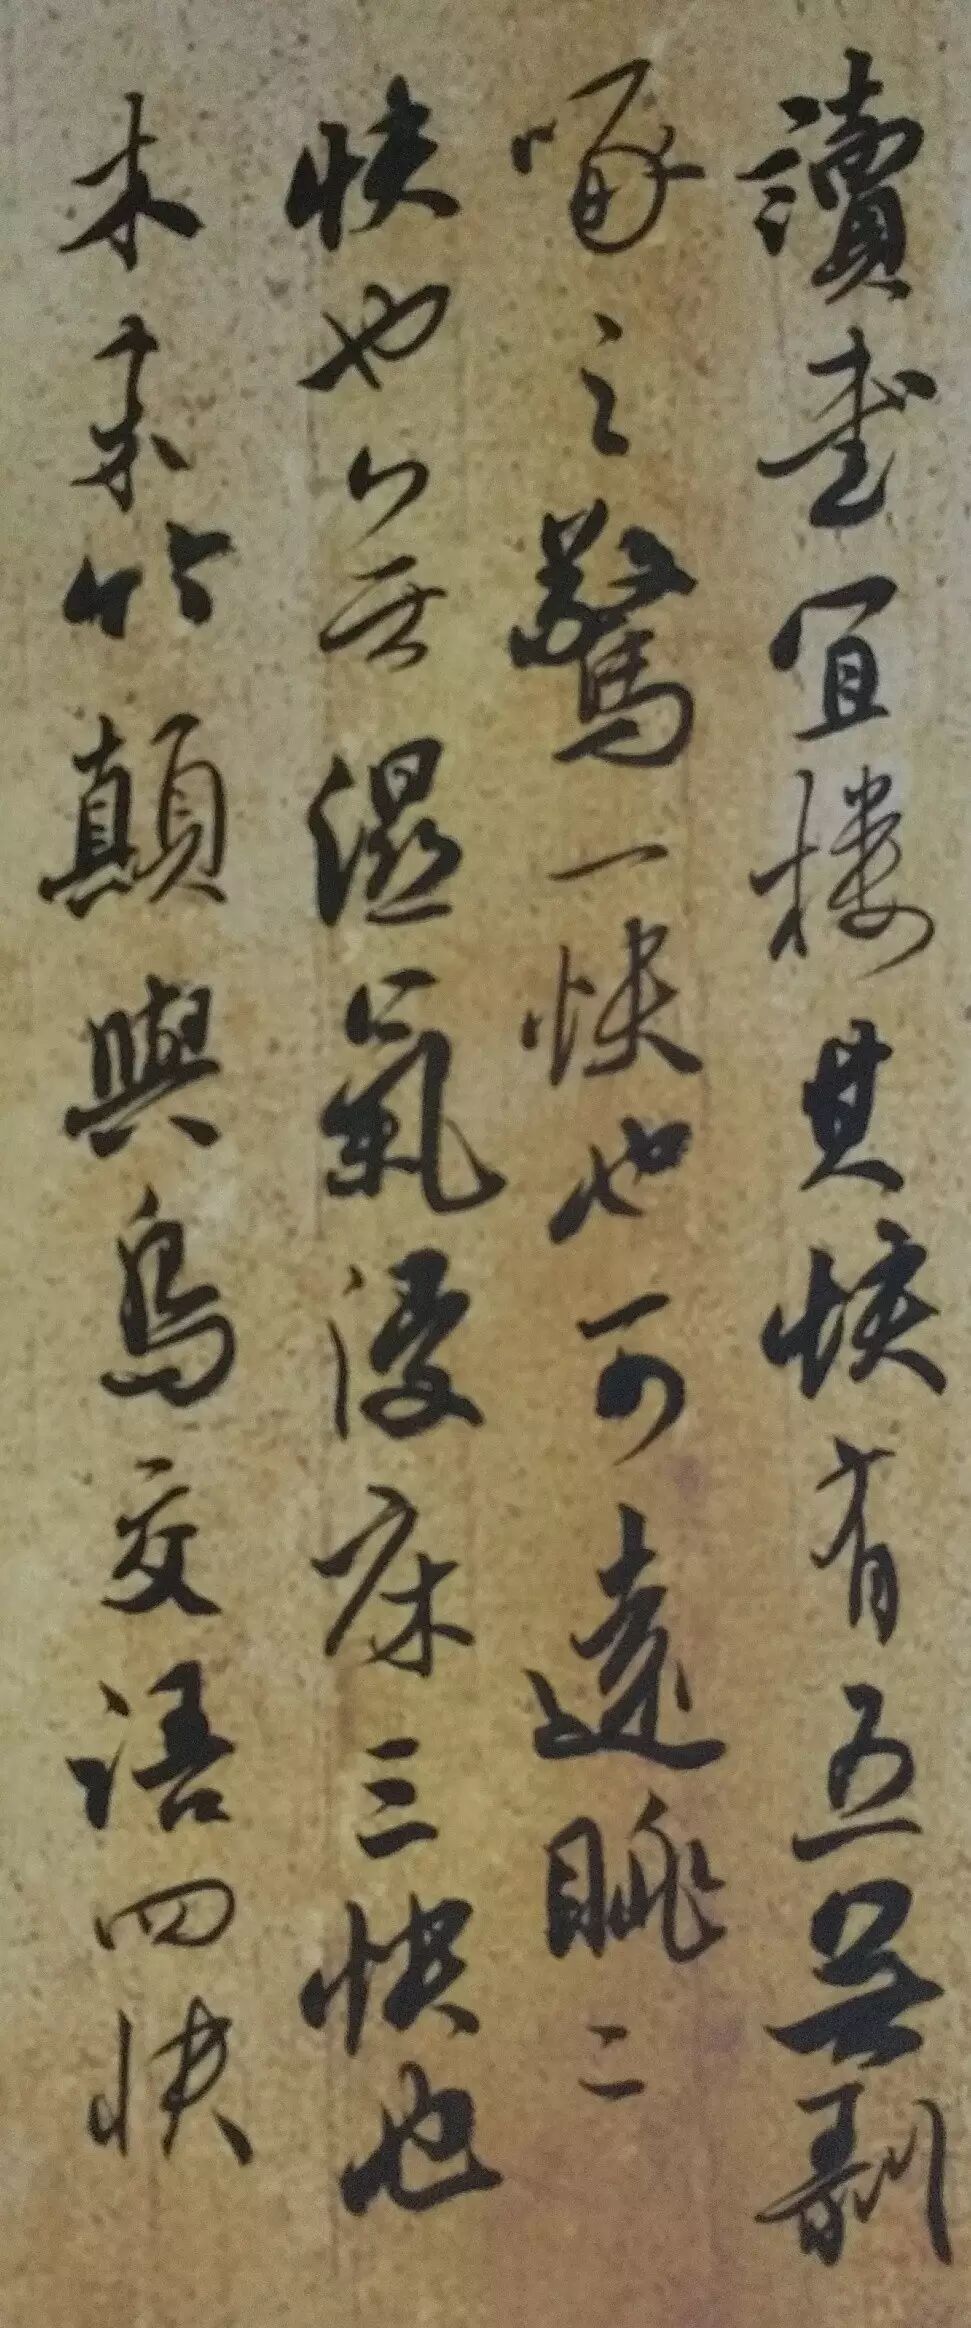 讀書宜樓其快有五無剥
啄之驚一快也可遠眺二
快也無濕氣浸床三快也
木末竹顛與鳥交語四快